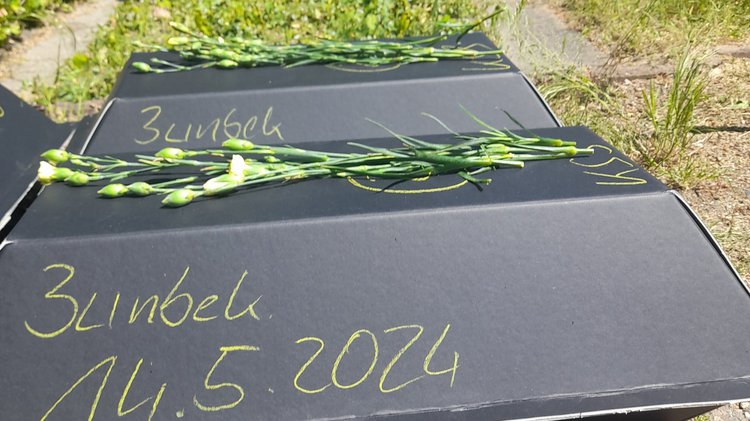 Zunbek
Zunbek.
14.5.2024